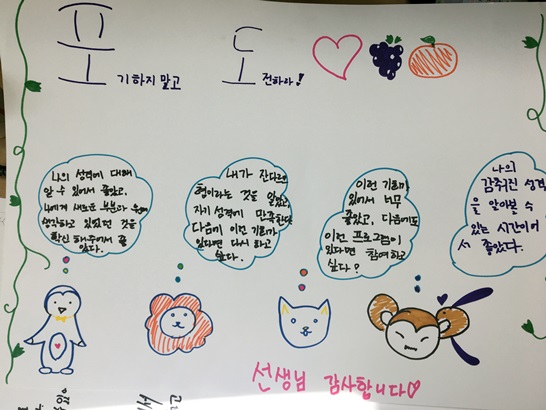 포기하지말고 도전하라!
나의 성격에 대해
알 수 있어서 좋았고,
나에게 새로운 부분과
생각하고 있었던 것을
확신 해주어서 좋
았다.
내가 잔다르크
형이라는 것을 알았고
자기 성격에 만족한다
다음에 이런 기회가
있다면 다시 하고
싶다.
이런 기회가
있어서 너무
좋았고, 다음에도
이런 프로그램이
있다면 참여하고
싶다?
나의
감춰진 성격
을 알아볼 수
있는 시간이어
서 좋았다.
선생님 감사합니다♡